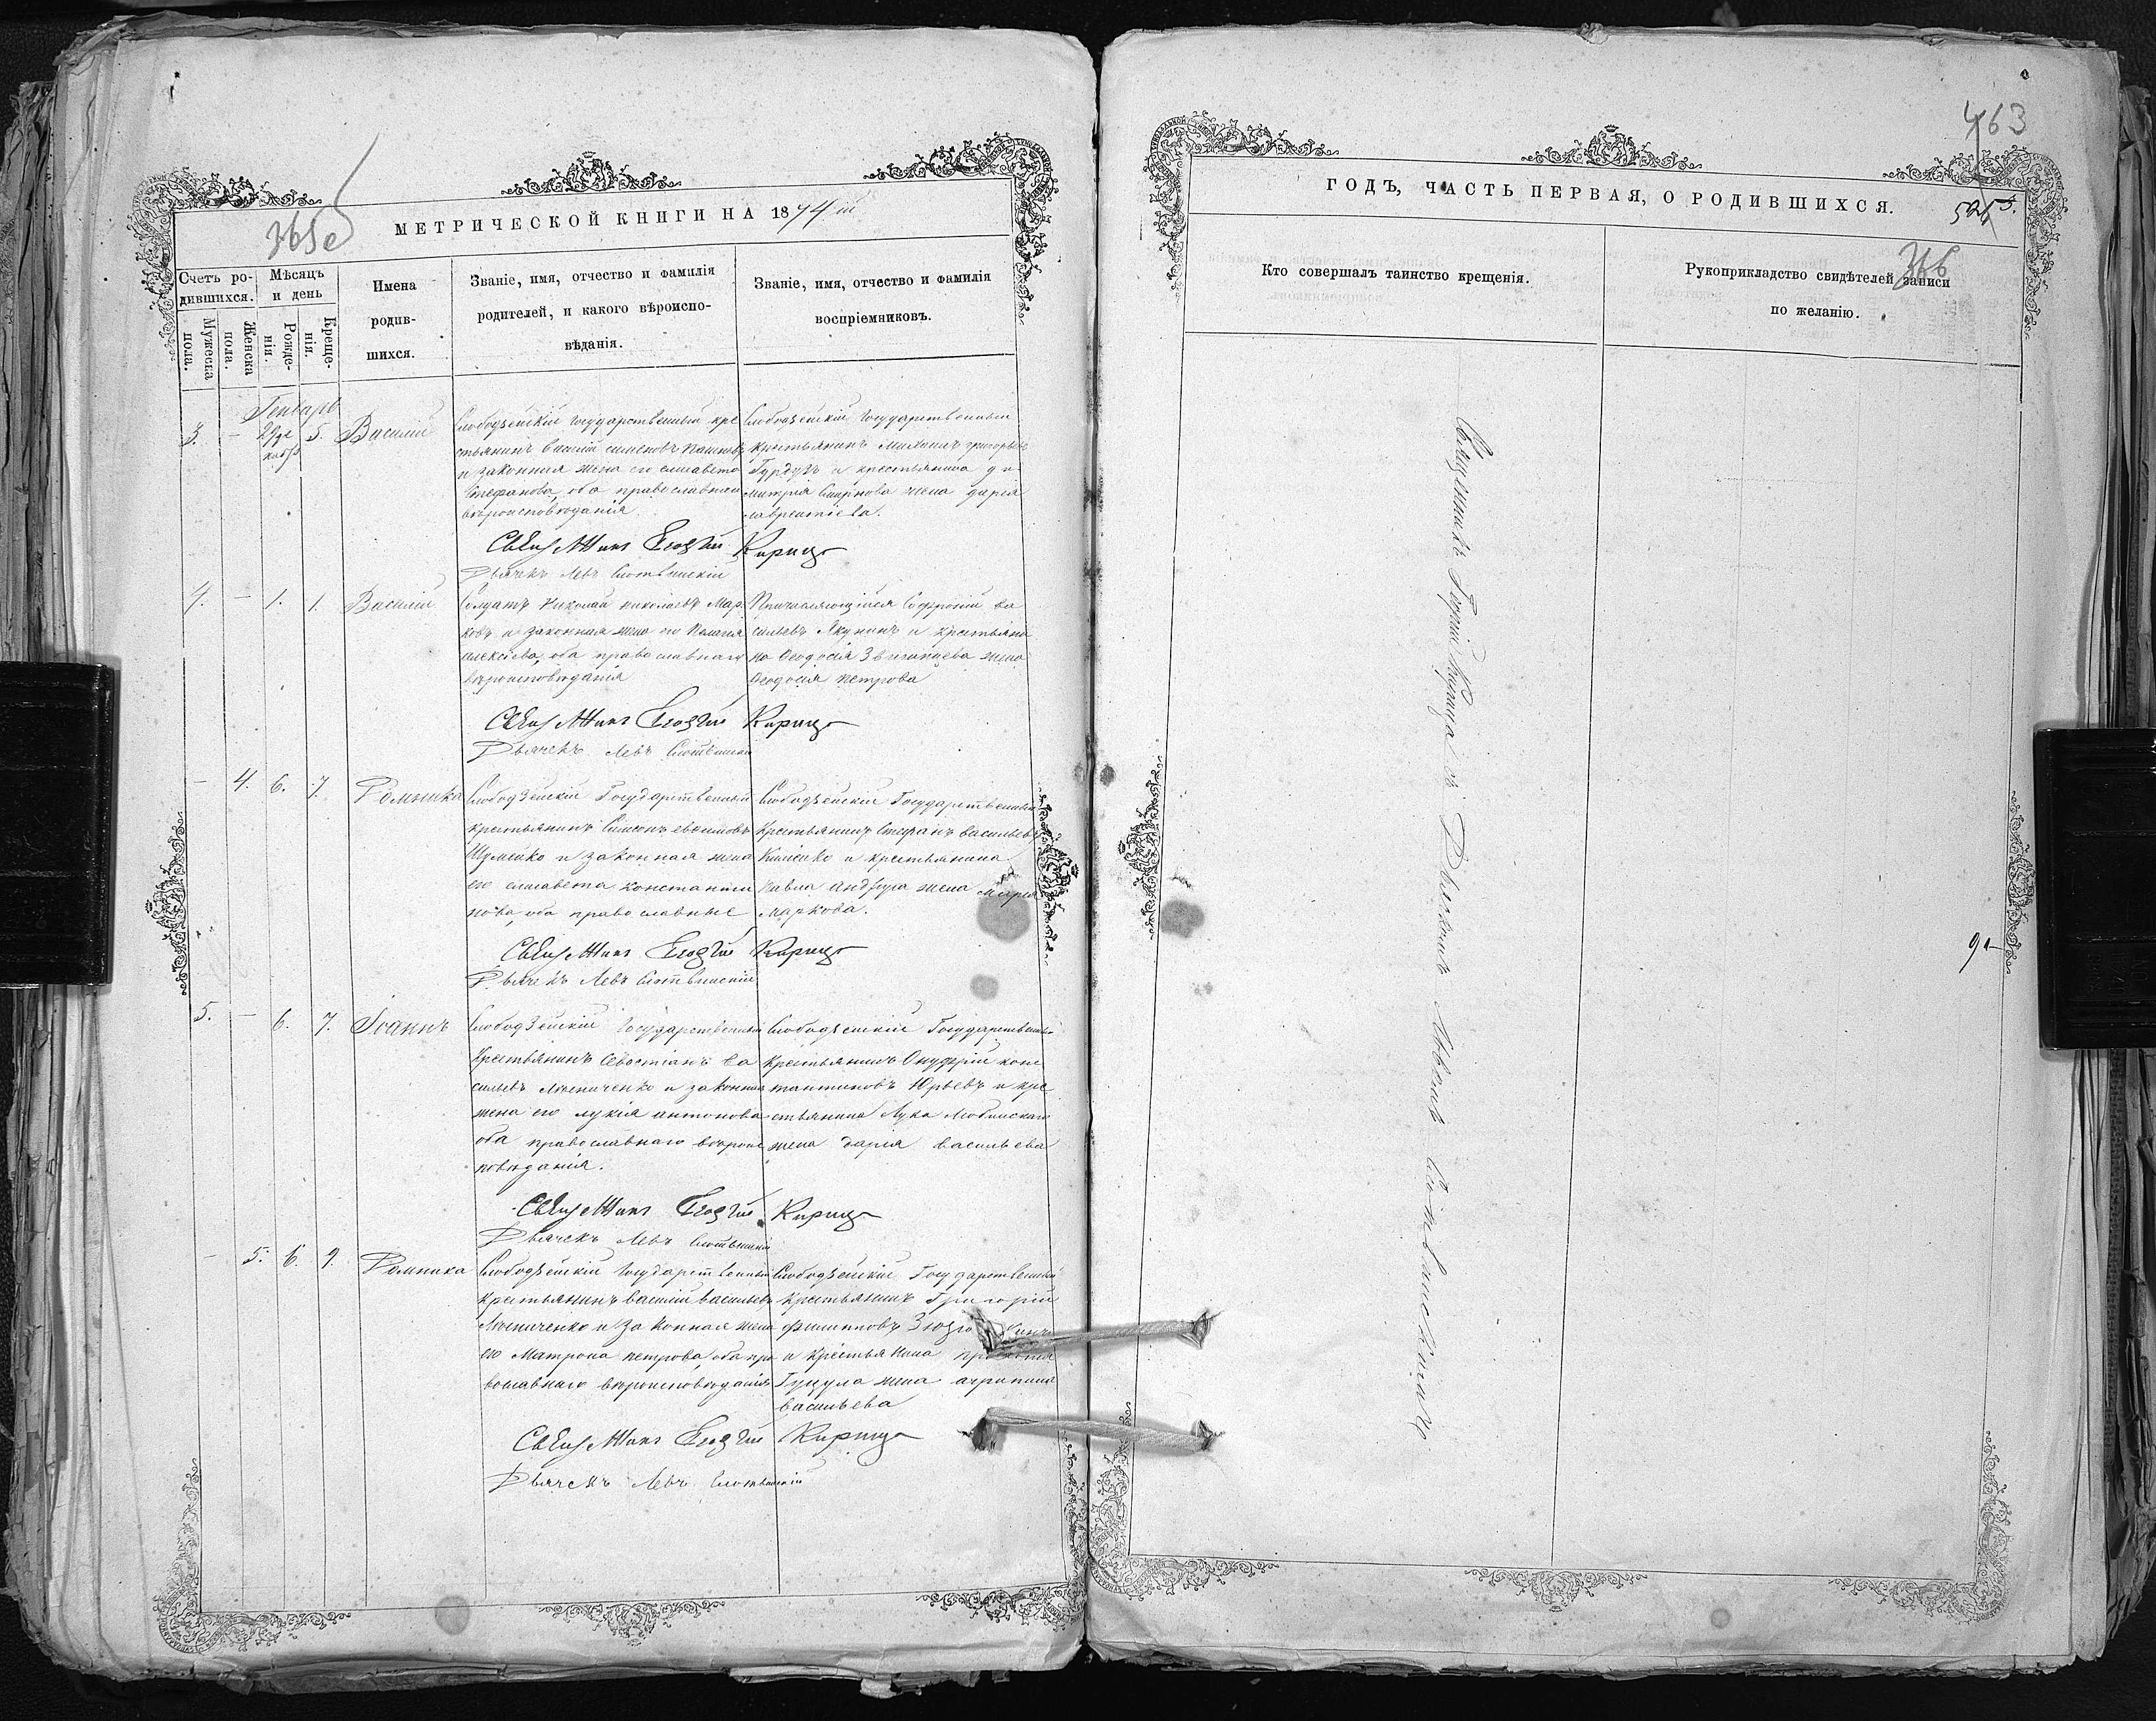 365 е
МЕТРИЧЕСКОЙ КНИГИ НА 1874 й
Счетъ ро-
дившихся.
Мужеска
пола.
Женска
пола.
Мѣсяцъ
и день
Рожде-
нія.
Креще-
нія.
Имена
родив-
шихся.
Званіе, имя, отчество и фамилія
родителей, и какого вѣроиспо-
вѣданія.
Званіе, имя, отчество и фамилія
воспріемниковъ.
Генварь
3. — 29 де 5. Василій
кабр
Слободзейскій государственный кре
стьянинъ Василій Симеоновъ
и законная жена его елисавета
Стефанова, оба православнаго
вѣроисповѣданія.
Слободзейскій государственный
крестьянинъ Михаилъ григорьевъ
и крестьянина ди
митрія Смирнова жена дарія
лаврентіева.
Священникъ Георгій Кирица
Дьячекъ Левъ
4. — 1. 1. Василій
Солдатъ Николай николаевъ Мар
ковъ и законная жена его Пелагія
алексіева, оба православнаго
вѣроисповѣданія
Причисляющійся Софроній ва
сильевъ Якунинъ и крестьяни
на Ѳеодосія жена
Ѳеодосія петрова
Священникъ Георгій Кирица
Дьячекъ Левъ
— 4. 6. 7. Домника
Слободзейскій Государственный
крестьянинъ Симеонъ евфимовъ
Шумейко и законная жена
его елисавета константи
нова, оба православные
Слободзейскій Государственный
Крестьянинъ Стефанъ васильевъ
и крестьянина
павла андруха жена Марія
Маркова.
Священникъ Георгій Кирица
Дьячекъ Левъ
5. — 6. 7. Іоаннъ
Слободзейскій Государственный
Крестьянинъ Севастіанъ ва
сильевъ и законная
жена его лукія антонова
оба православнаго вѣроис
повѣданія.
Слободзейскій Государственный
Крестьянинъ Онуфрій конс
тантиновъ Юрьевъ и кре
стьянина Лука
жена дарія васильева
Священникъ Георгій Кирица
Дьячекъ Левъ
— 5. 6. 9. Домника
Слободзейскій Государственный
крестьянинъ василій васильевъ
и законная жена
его Матрона петрова, оба пра
вославнаго вѣроисповѣданія
Слободзейскій Государственный
крестьянинъ Григорій
филипповъ
и крестьянина
Гуцула жена агрипина
васильева
Священникъ Георгій Кирица
Дьячекъ Левъ
463
ГОДЪ, ЧАСТЬ ПЕРВАЯ, О РОДИВШИХСЯ.
366
Кто совершалъ таинство крещенія.
Рукоприкладство свидѣтелей записи
по желанію.
Священникъ Георгій Кирица съ Дьячкомъ